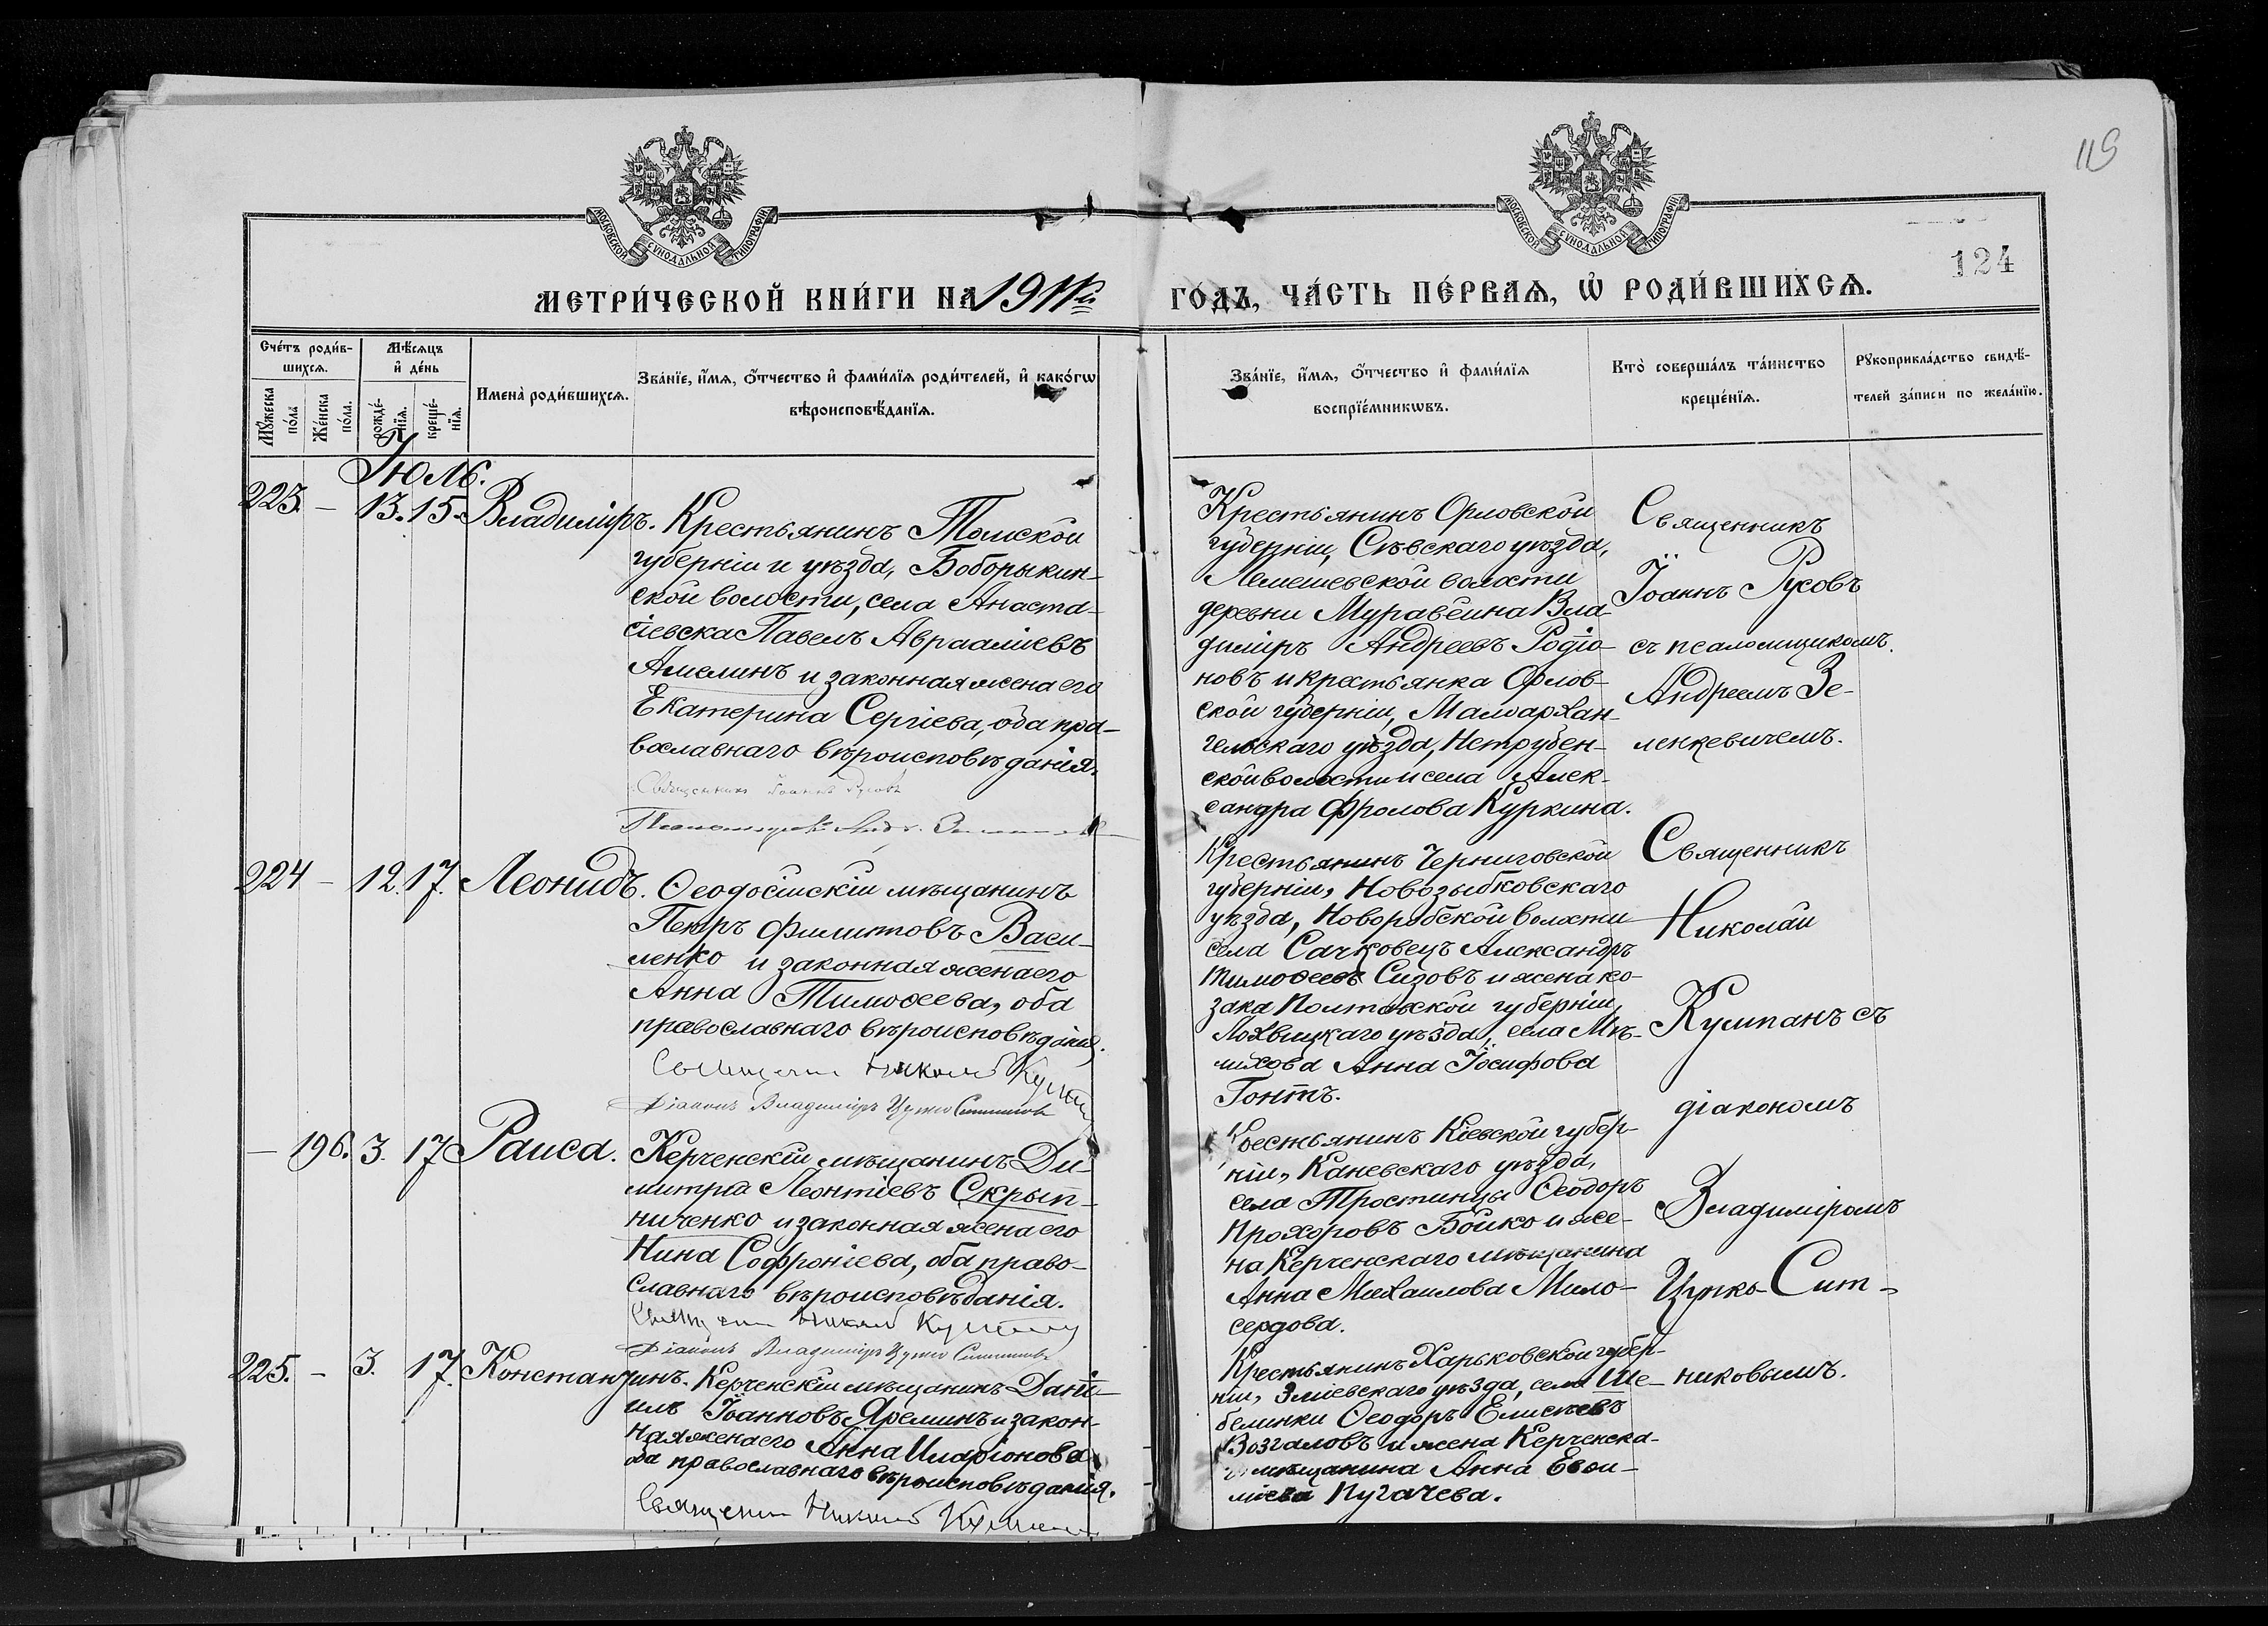 119
МОСКОВСКОЙ СѴНОДАЛЬНОЙ ТИПОГРАФІИ
МОСКОВСКОЙ СѴНОДАЛЬНОЙ ТИПОГРАФІИ
124
МЕТРИ́ЧЕСКОЙ КНИ́ГИ НА 1911й ГО́ДЪ, ЧА́СТЬ ПЕ́РВАѦ, Ѡ҆ РОДИ́ВШИХСѦ.
Сче́тъ роди́в-
шихсѧ.
Мꙋ́жеска
по́ла
Же́нска
по́ла.
Мѣ́сѧцъ
и҆ де́нь
рожде́-
нїѧ.
креще́-
нїѧ.
Имена̀ роди́вшихсѧ.
Зва́нїе, и҆́мѧ, ѻ҆́тчество и҆ фами́лїѧ роди́телей, и҆ како́гѡ
вѣроисповѣ́данїѧ.
Зва́нїе, и҆́мѧ, ѻ҆́тчество и҆ фами́лїѧ
воспрїе́мникѡвъ.
Кто̀ соверша́лъ та́инство
креще́нїѧ.
Рꙋкоприкла́дство свидѣ́-
телей за́писи по жела́нїю.
Іюль.
223. – 13. 15. Владиміръ.
Крестьянинъ Томской
губерніи и уѣзда, Боборыкин-
ской волости, села Анаста-
сіевска Павелъ Авраамiевъ
Амелинъ и законная жена его
Екатерина Сергіева, оба пра-
вославнаго вѣроисповѣданія.
Священникъ Іоаннъ Русовъ
Крестьянинъ Орловской
губерніи, Сѣвскаго уѣзда,
Лемешевской волости
деревни Муравейна Вла-
диміръ Андреевъ Родіо-
новъ и крестьянка Орлов-
ской губерніи, Малоархан-
гельскаго уѣзда, Нетрубен-
ской волости и села Алек-
сандра Фролова Куркина.
Священникъ
Іоаннъ Русовъ
съ псаломщикомъ
Андреемъ Зе-
ленкевичемъ.
224 – 12. 17. Леонидъ.
Ѳеодосійскій мѣщанинъ
Петръ Филиповъ Васи-
ленко и законная жена его
Анна Тимоѳеева, оба
православнаго вѣроисповѣданія.
Священникъ Николай Кулпанъ
Діаконъ Владиміръ Цупко Ситниковъ
Крестьянинъ Черниговской
губерніи, Новозыбковскаго
уѣзда, Новорябской волости
села Сачковецъ Александръ
Тимоѳеевъ Сизовъ и жена ко-
зака Полтавской губерніи,
Лохвицкаго уѣзда, села Мѣ-
лихова Анна Іосифова
Гонтъ.
Священникъ
Николай
Кулпанъ съ
діакономъ
Владиміромъ
Цупко-Сит-
никовымъ.
– 196. 3. 17 Раиса.
Керченскій мѣщанинъ Ди-
митрій Леонтіевъ Скрып-
ниченко и законная жена его
Нина Софроніева, оба право-
славнаго вѣроисповѣданія.
Священникъ Николай Кулпанъ
Діаконъ Владиміръ Цупко Ситниковъ
Крестьянинъ Кіевской губер-
ніи, Каневскаго уѣзда,
села Тростинцы Ѳеодоръ
Прохоровъ Бойко и же-
на Керченскаго мѣщанина
Анна Михаилова Мило-
сердова.
225. – 3. 17. Константинъ.
Керченскій мѣщанинъ Дані-
илъ Іоанновъ Яреминъ и закон-
ная жена его Анна Иларіонова
оба православнаго вѣроисповѣданія.
Священникъ Николай Кулпанъ
Крестьянинъ Харьковской губер-
ніи, Зміевскаго уѣзда, села Ше-
белинки Ѳеодоръ Елисѣевъ
Возгаловъ и жена Керченска-
го мѣщанина Анна Евѳи-
міева Пугачева.